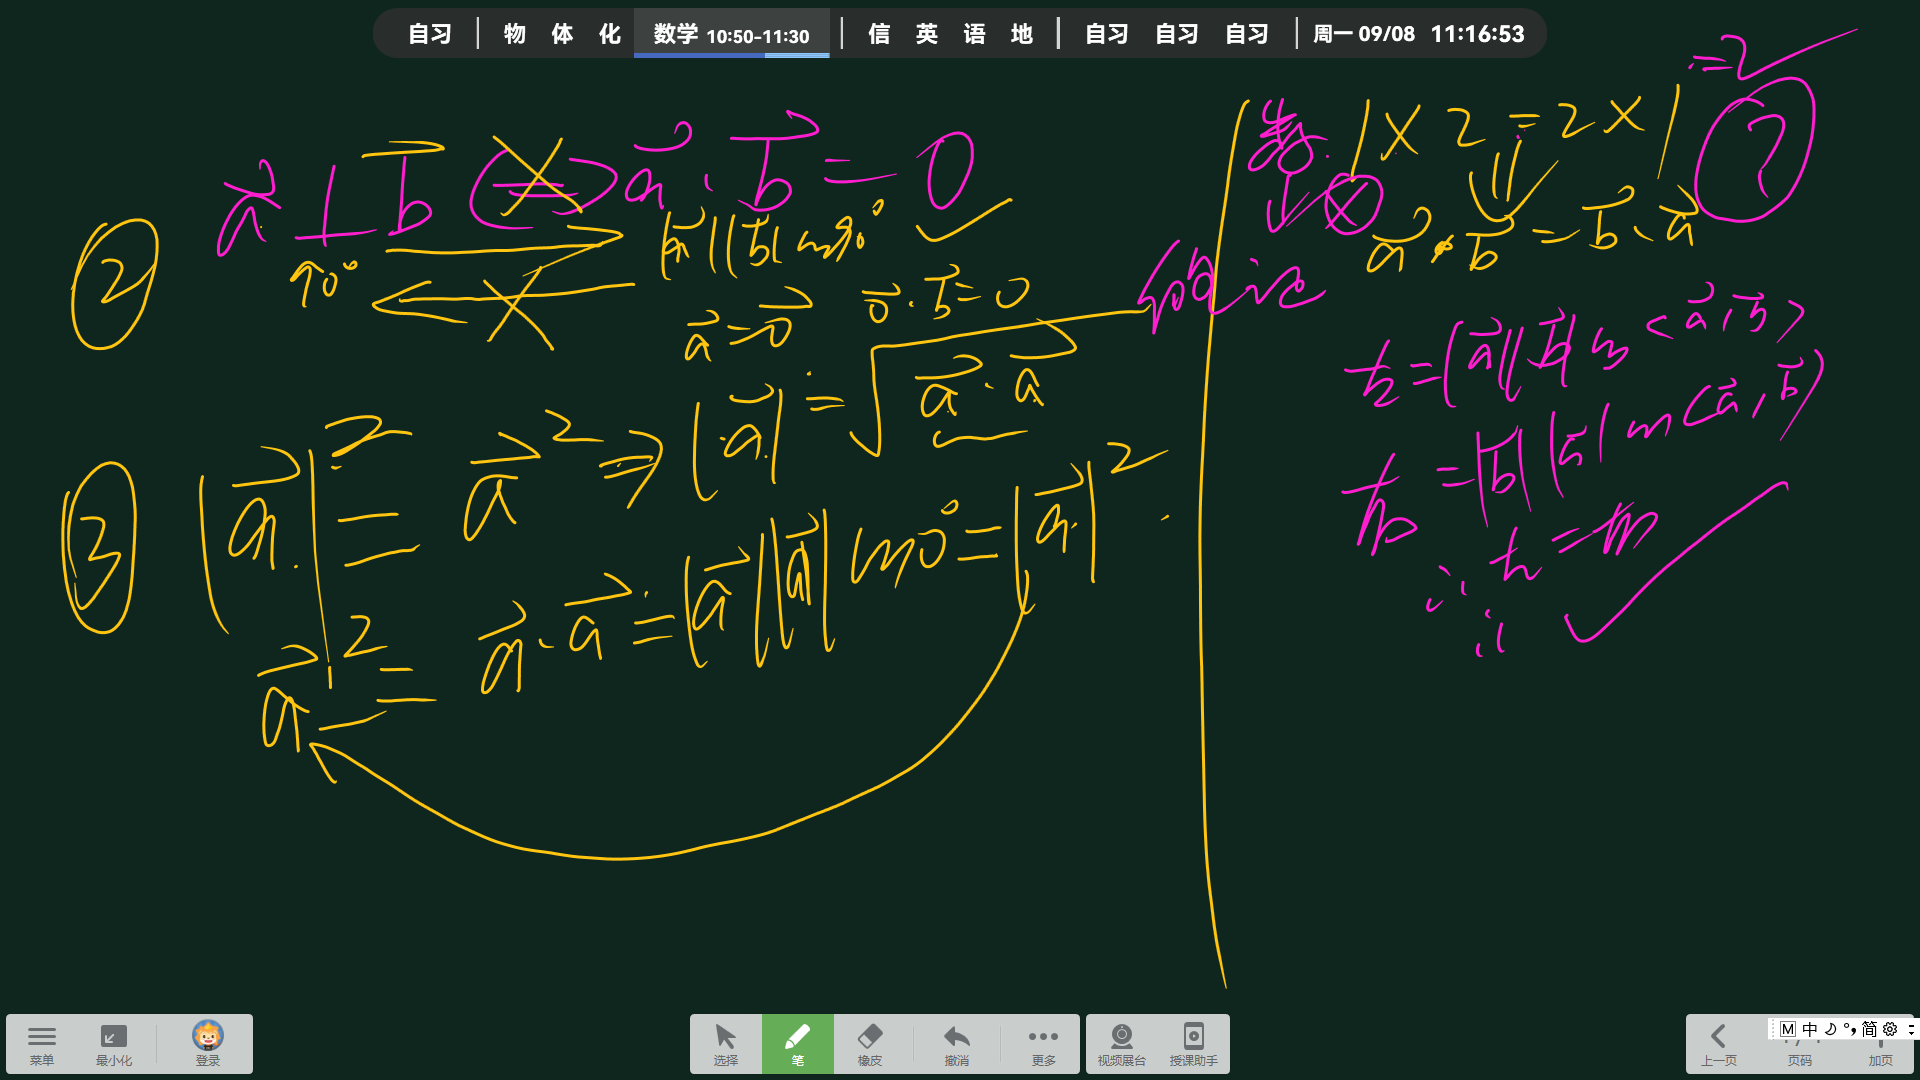 自习 | 物 体 化 数学 10:50-11:30 | 信 英 语 地 | 自习 自习 自习 | 周一 09/08 11:16:53
② a⃗⊥b⃗ ⇔ a⃗·b⃗=0
90° |a⃗||b⃗|cos90°
a⃗=0⃗ 0⃗·b⃗=0
③ |a⃗|²=a⃗² ⇒ |a⃗|=√a⃗·a⃗
a⃗²=a⃗·a⃗=|a⃗||a⃗|cos0°=|a⃗|²
数 1×2=2×1 =2
?
a⃗·b⃗=b⃗·a⃗
左=|a⃗||b⃗|cos<a⃗,b⃗>
右=|b⃗||a⃗|cos<a⃗,b⃗>
∴左=右
菜单 最小化 登录 选择 笔 橡皮 撤消 更多 视频展台 授课助手 上一页 页码 加页
M 中 简